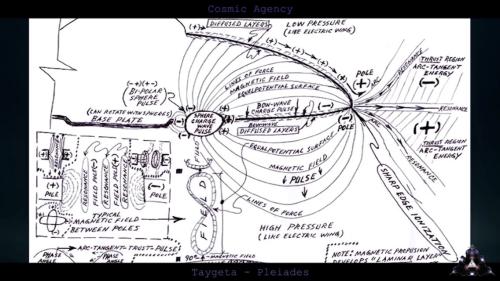 Cosmic Agency
(+)
DIFFUSED LAYERS
LOW PRESSURE
(LIKE ELECTRIC WING)
(-+)(+-)
BI-POLAR
SPHERE
PULSE
(CAN ROTATE WITH SPHERES)
BASE PLATE
LINES OF FORCE
MAGNETIC FIELD
EQUIPOTENTIAL SURFACE
SPHERE
CHARGE
WAVE
PULSE
BOW-WAVE
CHARGE PULSE
(-)
DIFFUSED LAYERS
POLE
(+)
(-)
POLE
RESONANCE
THRUST REGION
ARC-TANGENT
ENERGY
(-)
RESONANCE
(+)
THRUST REGION
ARC-TANGENT
ENERGY
RESONANCE
EQUIPOTENTIAL SURFACE
MAGNETIC FIELD
PULSE
LINES OF FORCE
SHARP EDGE IONIZATION
(+)
POLE
RESONANCE
FIELD POLE(-)
RESONANCE
FIELD POLE(+)
RESONANCE
(-)
POLE
TYPICAL
MAGNETIC FIELD
BETWEEN POLES
FIELD
HIGH PRESSURE
(LIKE ELECTRIC WING)
ARC-TANGENT-TRUST-PULSES
PHASE
ANGLE
PHASE
ANGLE
NOTE: MAGNETIC PROPULSION
DEVELOPS "LAMINAR LAYER"
Taygeta - Pleiades